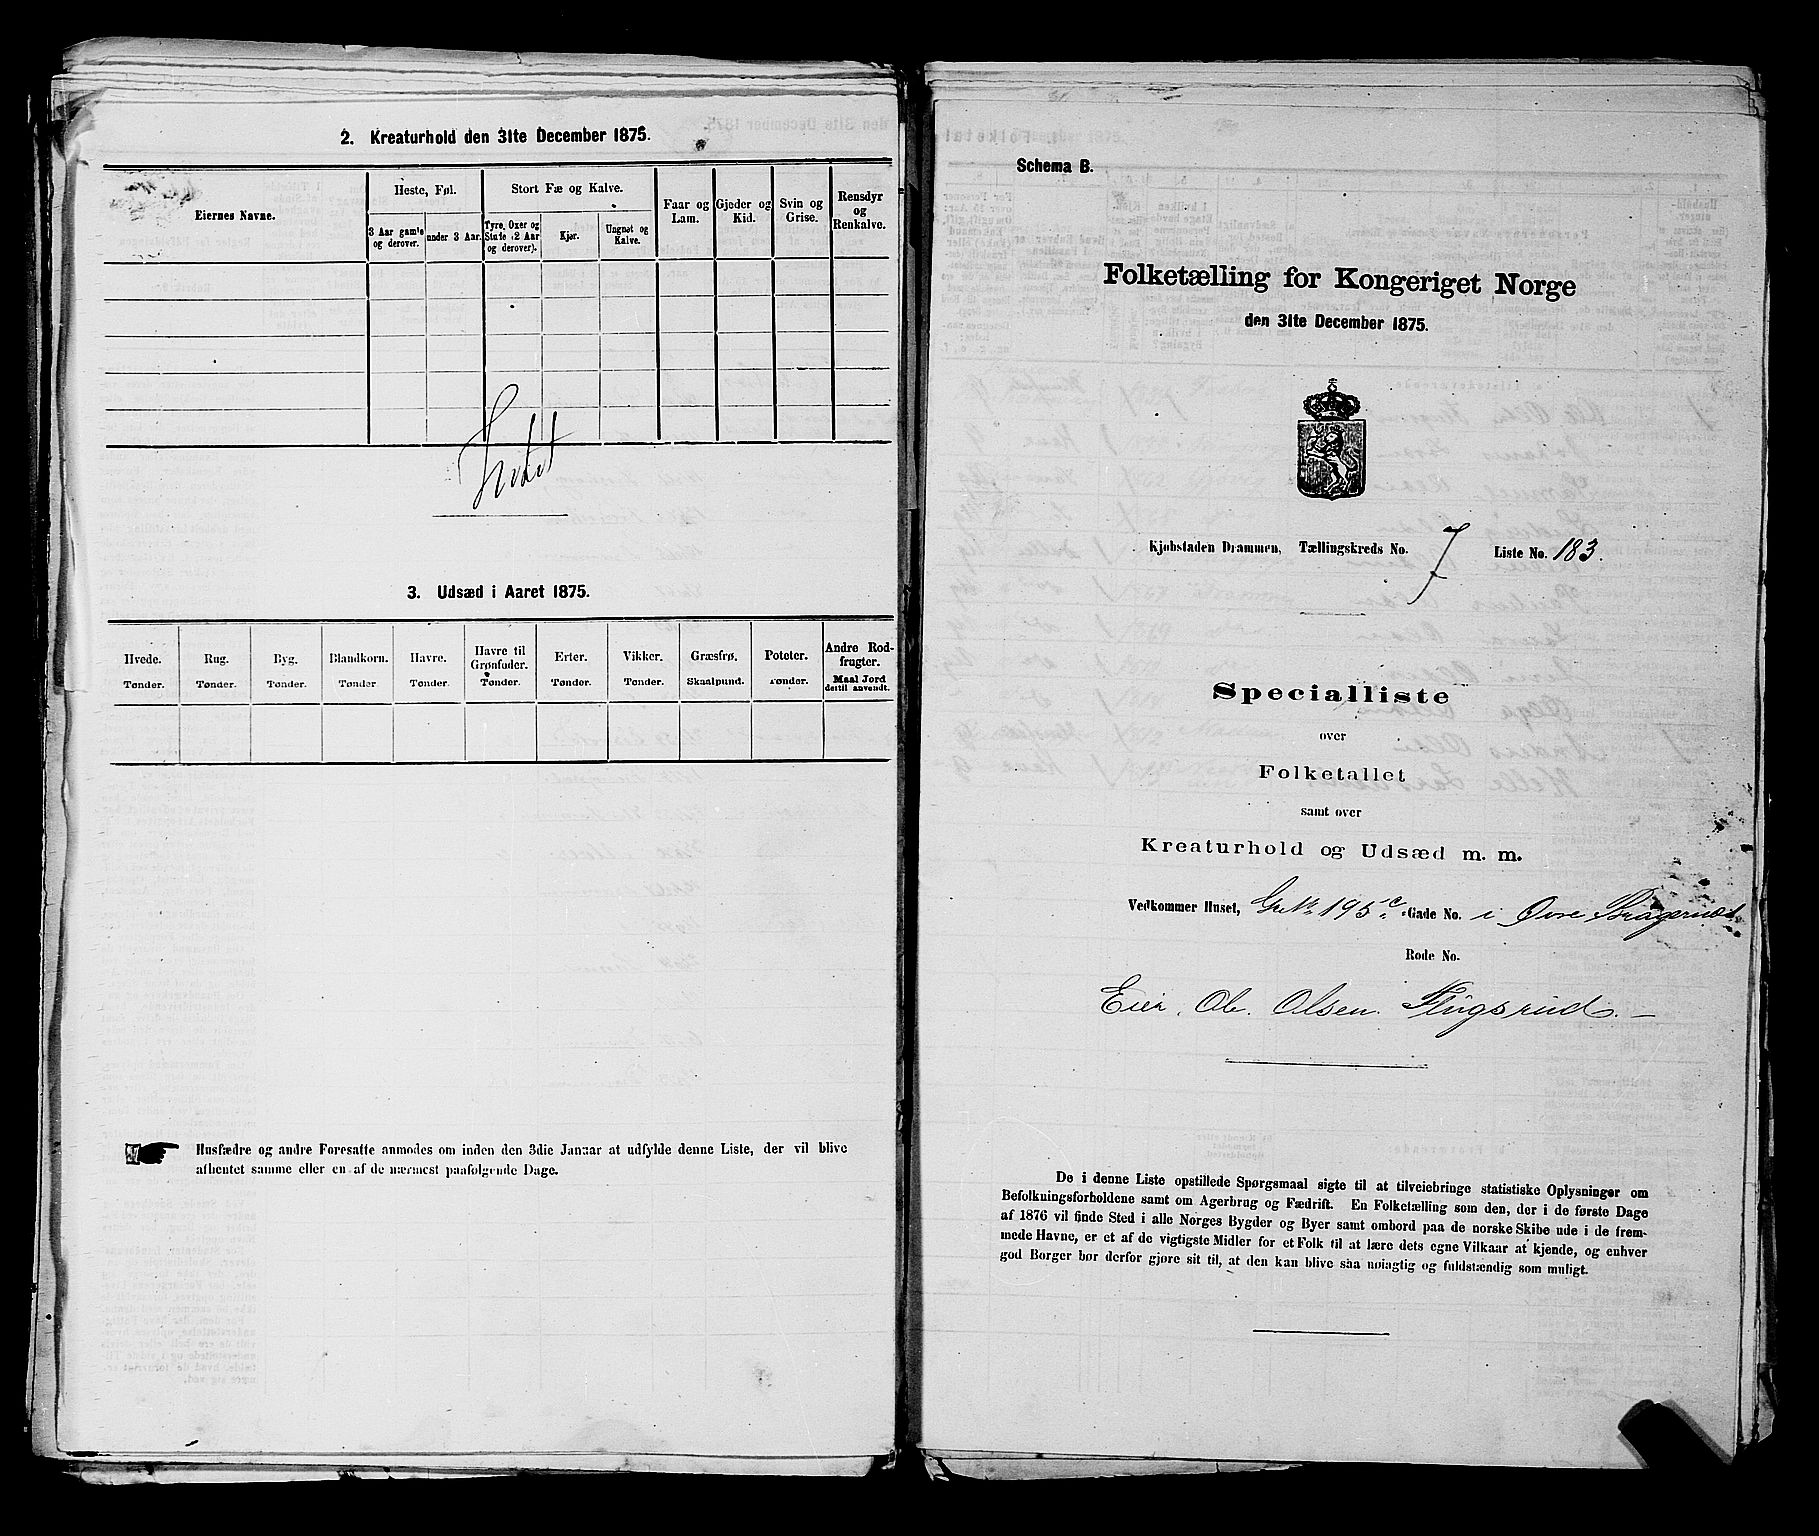 2. Kreaturhold den 31te December 1875.
Eiernes Navne.
Heste, Føl.
Stort Fæ og Kalve.
Faar og Lam.
Gjeder og Kid.
Svin og Grise.
Rensdyr og Renkalve.
3 Aar gamle og derover.
under 3 Aar.
Tyre, Oxer og Stude (2 Aar og derover).
Kjør.
Ungnøt og Kalve.
3. Udsæd i Aaret 1875.
Hvede. Rug. Byg. Blandkorn. Havre. Havre til Grønfoder. Erter. Vikker. Græsfrø. Poteter. Andre Rodfrugter.
Tønder. Tønder. Tønder. Tønder. Tønder. Tønder. Tønder. Tønder. Skaalpund. Tønder. Maal Jord dertil anvendt.
Husfædre og andre Foresatte anmodes om inden den 3die Januar at udfylde denne Liste, der vil blive
afhentet samme eller en af de nærmest paafølgende Dage.
Schema B.
Folketælling for Kongeriget Norge
den 31te December 1875.
Kjøbstaden Drammen, Tællingskreds No. 7 Liste No. 183.
Specialliste
over
Folketallet
samt over
Kreaturhold og Udsæd m. m.
Vedkommer Huset, 195 c Gade No. i Øvre Bragernæs
Rode No.
Eier. Ole. Olsen. Flugsrud. —
De i denne Liste opstillede Spørgsmaal sigte til at tilveiebringe statistiske Oplysninger om
Befolkningsforholdene samt om Agerbrug og Fædrift. En Folketælling som den, der i de første Dage
af 1876 vil finde Sted i alle Norges Bygder og Byer samt ombord paa de norske Skibe ude i de frem-
mede Havne, er et af de vigtigste Midler for et Folk til at lære dets egne Vilkaar at kjende, og enhver
god Borger bør derfor gjøre sit til, at den kan blive saa nøiagtig og fuldstændig som muligt.